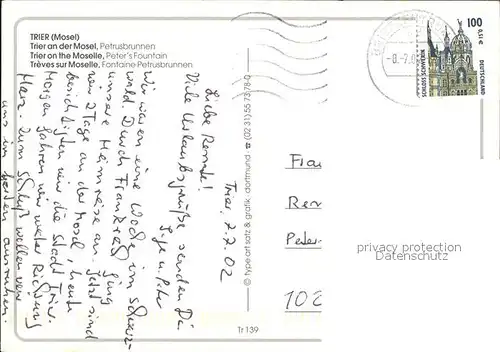 TRIER (Mosel)
Trier an der Mosel, Petrusbrunnen
Trier on the Moselle, Peter's Fountain
Trèves sur Moselle, Fontaine Petrusbrunnen
100
0,51 €
SCHLOSS SCHWERIN
DEUTSCHLAND
Trier, 7.7.02
Liebe Renate!
Viele Urlaubsgrüße senden Dir
Inge u. Peter
Wir waren eine Woche im Schwarz-
wald. Durch Frankreich ging
unsere Heimreise an. Jetzt sind
wir 2 Tage an der Mosel, heute
besichtigten wir die Stadt Trier.
Morgen fahren wir weiter Richtung
Harz. Zum Schluß wollen wir
uns im
ausruhen.
© hype art satz & grafik, dortmund
Tr 139
Ren
Peter-
102
privacy protection
Datenschutz